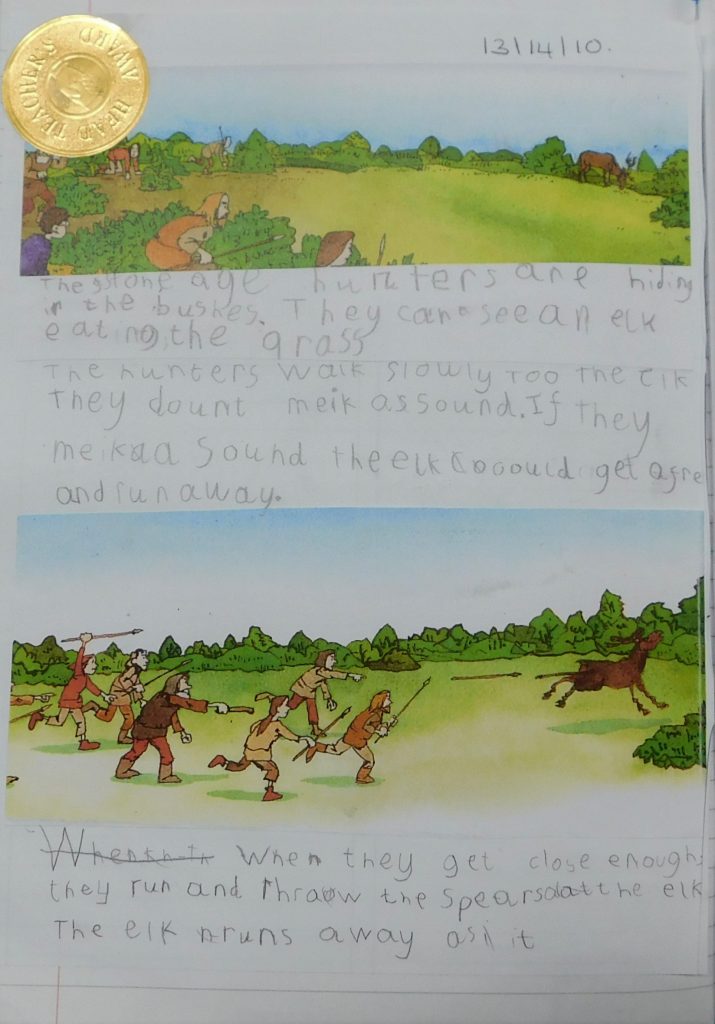 HEAD TEACHER'S AWARD
13/14/10.
The stone age hunters are hiding
in the bushes. They can see an elk
eating the grass
The hunters walk slowly too the elk
They dount meik as sound. If they
meik a sound the elk would get afre
and run away.
When they get close enough
they run and Thraow the Spears at the elk
The elk runs away as it